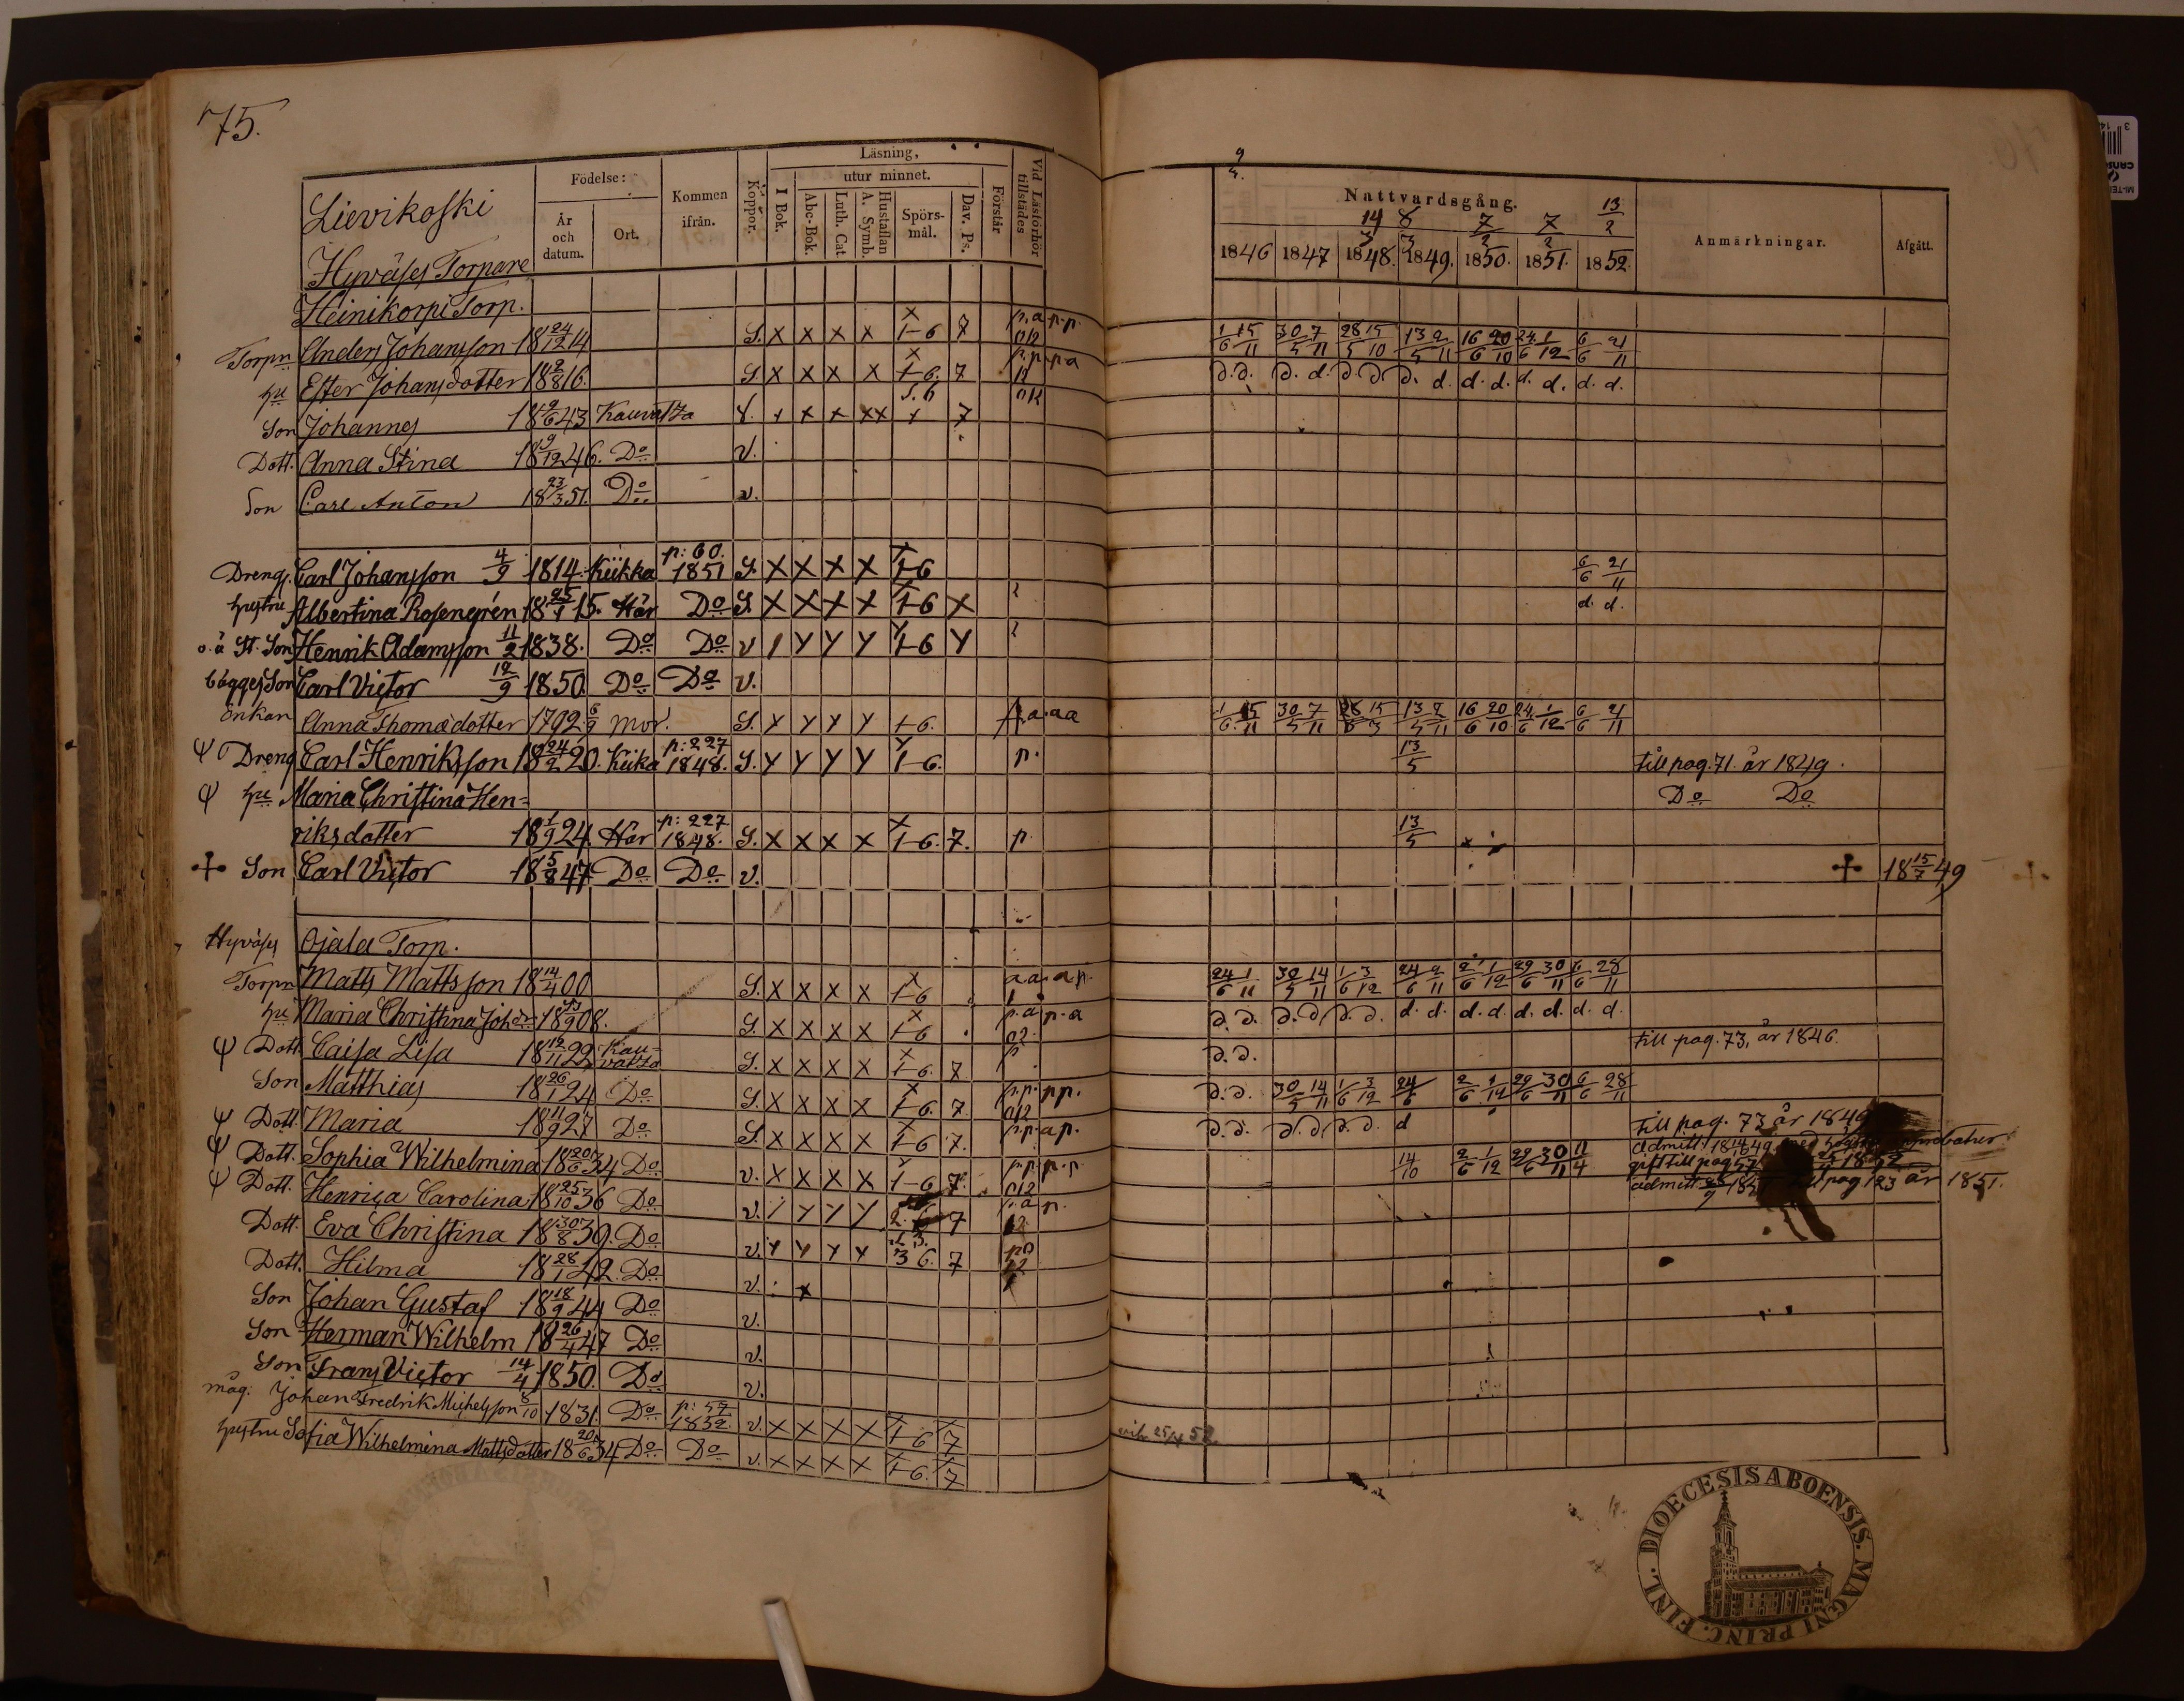 75.
Lievikoski
Hyväses Torpare
Födelse:
År och datum.
Ort.
Kommen ifrån.
Koppor.
Läsning,
I Bok.
utur minnet.
Abc-Bok.
Luth. Cat
Hustaflan A. Symb.
Spörs-mål.
Dav. Ps.
Förstår
Vid Läsförhör tillstädes
Nattvardsgång.
14/3 8/3 7/2 7/2 13/2
1846 1847 1848. 1849. 1850. 1851. 1852.
Anmärkningar.
Afgått.
Heinikorpi Torp.
Torpn Anders Johansson 18 24/12 14 S. X X X X 1-6 7 1/6 15/11 30/5 7/11 28/5 15/10 13/5 2/11 16/6 20/10 24/6 1/12 6/6 21/11
hu Ester Johansdotter 18 2/8 16. S X X X X 1-6. 7 d. d. d. d. d. d. d. d. d. d. d. d. d. d.
Son Johannes 18 9/6 43 Kauvatza 7
Dott. Anna Stina 18 9/12 46. Do v.
Son Carl Anton 18 23/3 51. Do v.
Dreng. Carl Johansson 4/9 1814. Kiikka p: 60. 1851 S. X X X X 1-6 6/6 21/11
hustru Albertina Rosengrén 18 25/1 15. Här Do S. X X X X 1-6 X d. d.
o. ä St. Son Henrik Adamsson 11/2 1838. Do Do v 1-6
bägges Son Carl Victor 12/9 1850. Do Do v.
Enkan Anna Thomædotter 1792. 6/9 mor. S. 1-6. 1/6 15/11 30/5 7/11 13/5 2/11 16/6 20/10 24/6 1/12 6/6 21/11
Dreng Carl Henriksson 18 24/2 20. Kiika p: 227 1848. S. 1-6. p. 13/5 till pag. 71. år 1849.
hu Maria Christina Hen-
Do Do
riksdotter 18 1/9 24. Här p: 227 1848. S. X X X X 1-6. 7. p. 13/5
Son Carl Victor 18 5/8 47 Do Do v. 18 15/7 49
Hyväses Ojala Torp.
Torpn Matts Mattsson 18 14/4 00 S. X X X X 1-6 24/6 1/11 30/5 14/11 1/6 3/12 24/6 2/11 2/6 1/12 29/6 30/11 6/6 28/11
hu Maria Christina Johdr 08. S. X X X X 1-6 d. d. d. d. d. d. d. d. d. d. d. d. d. d.
Dott. Caisa Lisa 18 12/11 22 Kauvatza S. X X X X 1-6. 7 p d. d. till pag. 73, år 1846.
Son Matthias 18 26/1 24 Do S. X X X X 1-6. 7. d. d. 30/5 14/11 1/6 3/12 24/6 2/6 1/12 29/6 30/11 6/6 28/11
Dott. Maria 18 11/9 27 Do S. X X X X 1-6 7. d. d. d. d. d. d. d till pag. 73 år 1849
Dott. Sophia Wilhelmina 18 20/6 34 Do v. X X X X 1-6 7. 14/10 2/6 1/12 29/6 30/11 11/4 admitt.
gift till pag 57 1852
Dott. Henrica Carolina 18 25/10 36 Do v. 7 admitt. pag 123 år 1851.
Dott. Eva Christina 18 30/8 39. Do v. 3 6. 7
Dott. Hilma 18 28/1 42. Do v.
Son Johan Gustaf 18 18/9 44 Do v.
Son Herman Wilhelm 18 26/4 47 Do v.
Son Frans Victor 14/4 1850. Do v.
måg. Johan Fredrik Michelsson 8/10 1831. Do p: 57 1852. v. X X X X 1-6 7
hustru Sofia Wilhelmina Mattsdotter 18 20/6 34 Do Do v. X X X X 1-6. 7
DIOECESIS ABOENSIS. MAGNI PRINC. FINL.